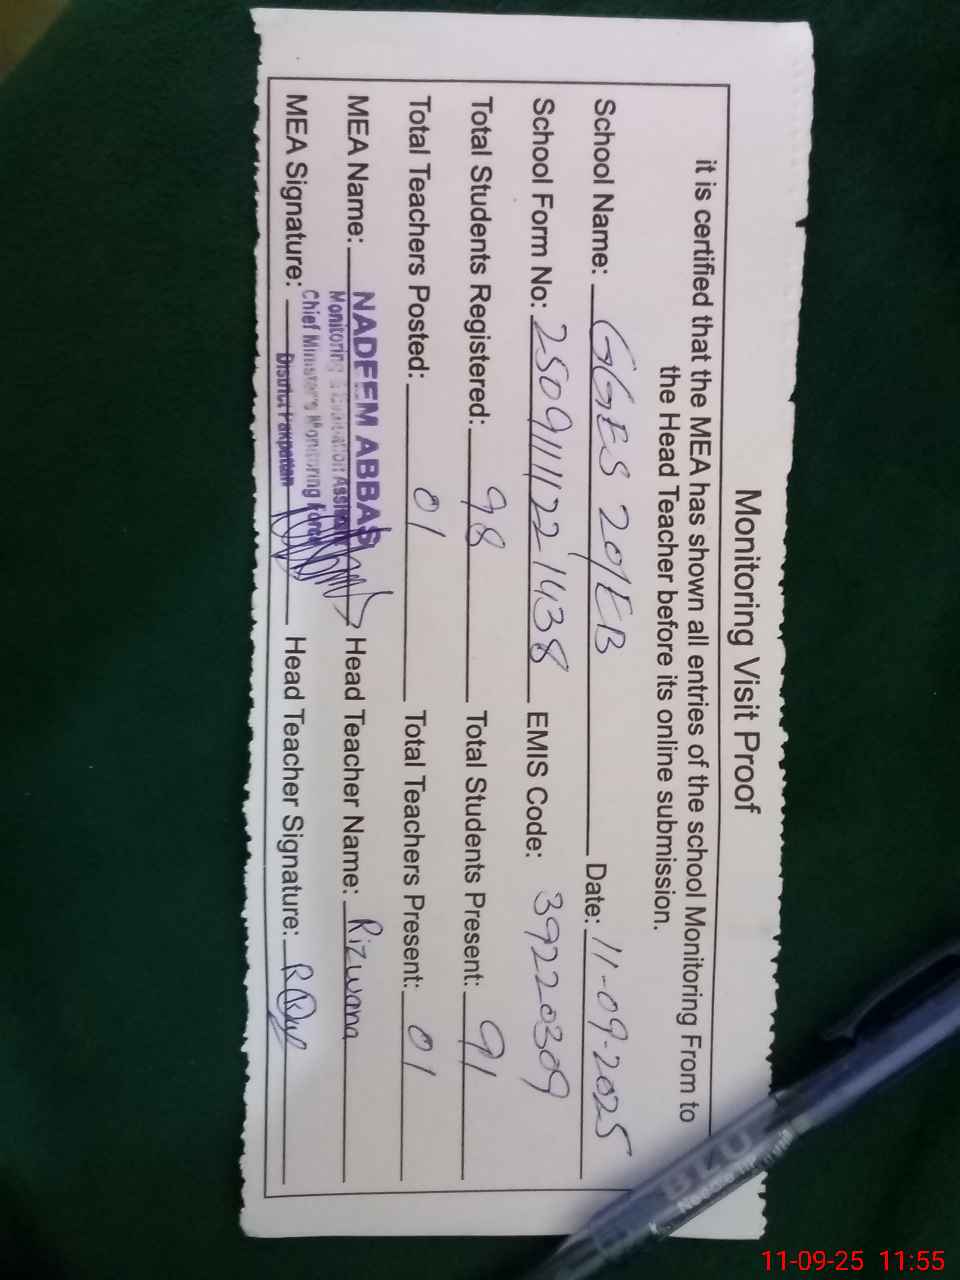 Monitoring Visit Proof
it is certified that the MEA has shown all entries of the school Monitoring From to
the Head Teacher before its online submission.
School Name: GGES 29/EB Date: 11-09-2025
School Form No: 250911122 1438 EMIS Code: 39220309
Total Students Registered: 98 Total Students Present: 91
Total Teachers Posted: 01 Total Teachers Present: 01
MEA Name: NADEEM ABBAS Head Teacher Name: Rizwana
Monitoring & Evaluation Assistant
Chief Minister's Monitoring Force
District Pakpattan
MEA Signature: Head Teacher Signature:
BLU
Needle
11-09-25 11:55